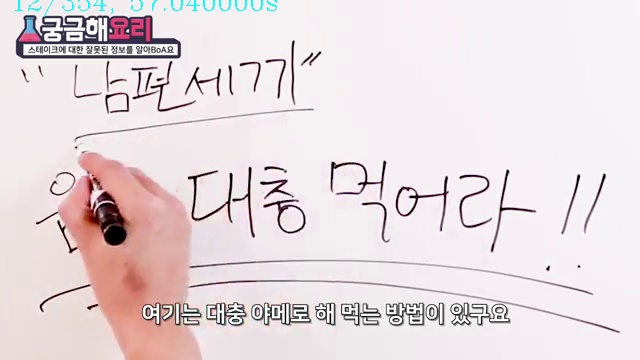 12/354, 57.040000s
궁금해요리
스테이크에 대한 잘못된 정보를 알아BoA요
"남편세끼"
대충 먹어라!!
여기는 대충 야메로 해 먹는 방법이 있구요